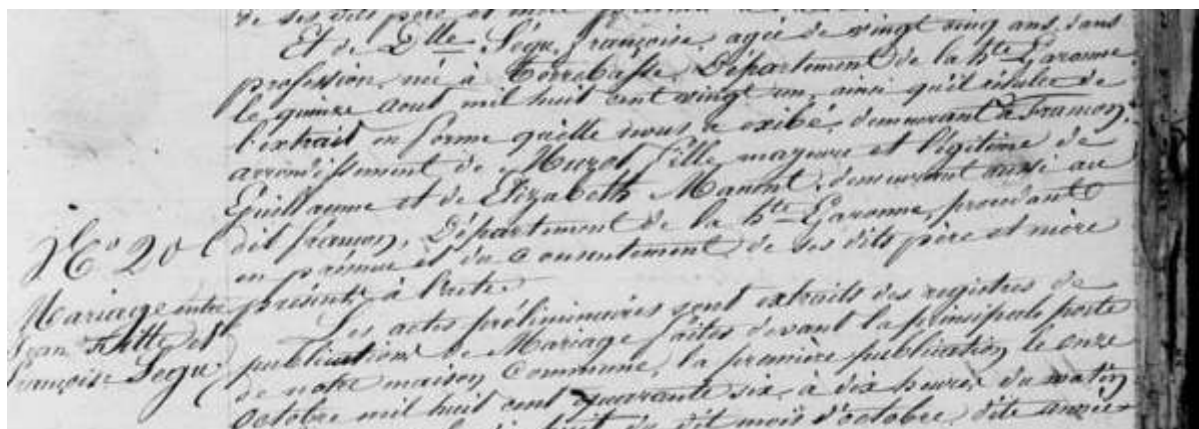 de ses dits père et mère
Et de Dlle Ségu, françoise, agée de vingt cinq ans, sans
profession, née à Terrebasse, Département de la hte Garonne
le quinze aout mil huit cent vingt un, ainsi qu'il résulte de
l'extrait en forme qu'elle nous a exibé, demeurant à Francon,
arrondissement de Muret fille majeure et légitime de
Guillaume et de Elizabeth Manent, demeurant aussi au
dit francon, Département de la hte Garonne, procédant
en présence et du consentement de ses dits père et mère
présents à l'acte.
Les actes préliminaires sont extraits des registres de
publications de Mariage faites devant la principale porte
de notre maison Commune, la première publication le onze
Octobre mil huit cent quarante six, à dix heures du matin
du dit mois d'octobre, dite année
No 20
Mariage entre
Jean Fitte et
françoise Segu